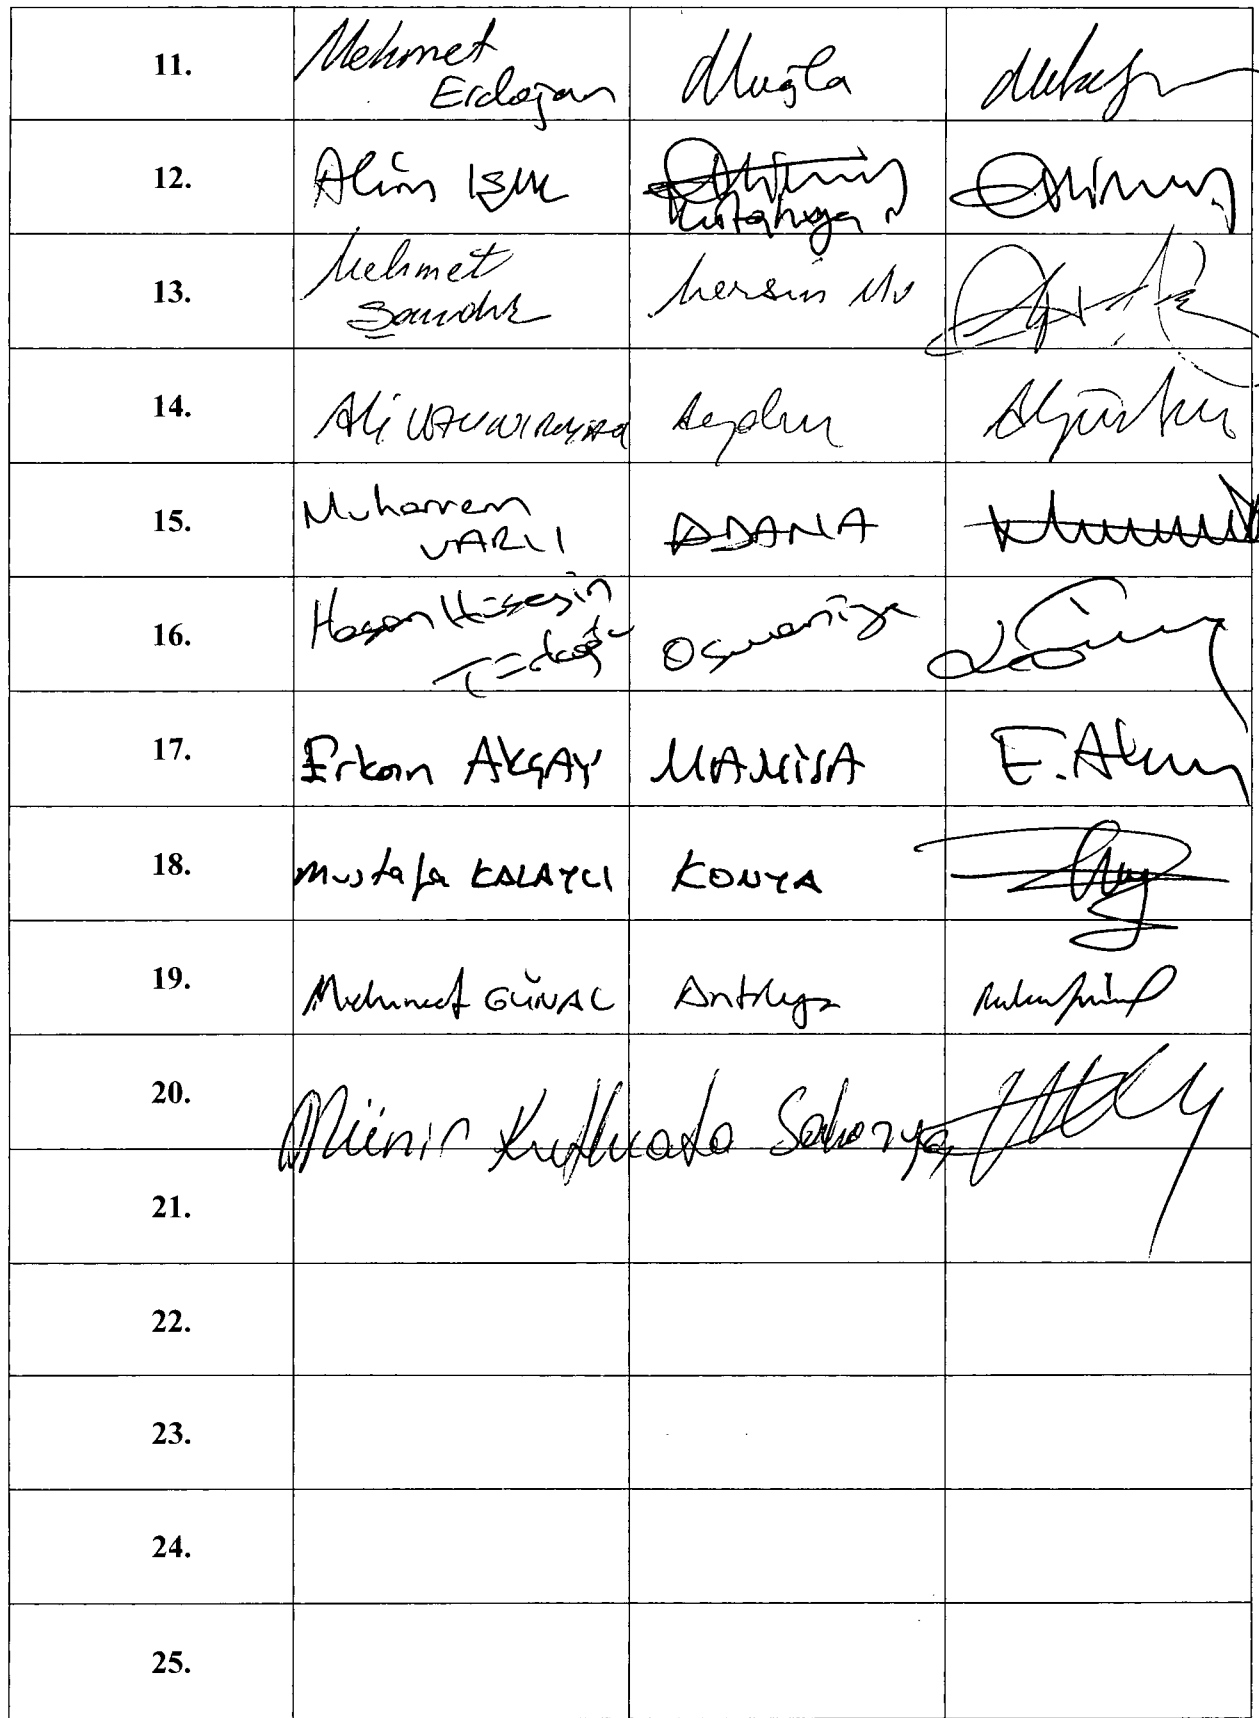 11. Mehmet Erdoğan Muğla
12. Alim Işık Kütahya
13. Mehmet Şandır Mersin Mv
14. Ali Uzunırmak Aydın
15. Muharrem VARLI ADANA
16. Hasan Hüseyin Türkoğlu Osmaniye
17. Erkan AKÇAY MANİSA E. Akçay
18. Mustafa KALAYCI KONYA
19. Mehmet GÜNAL Antalya
20. Münir Kutluata Sakarya
21.
22.
23.
24.
25.